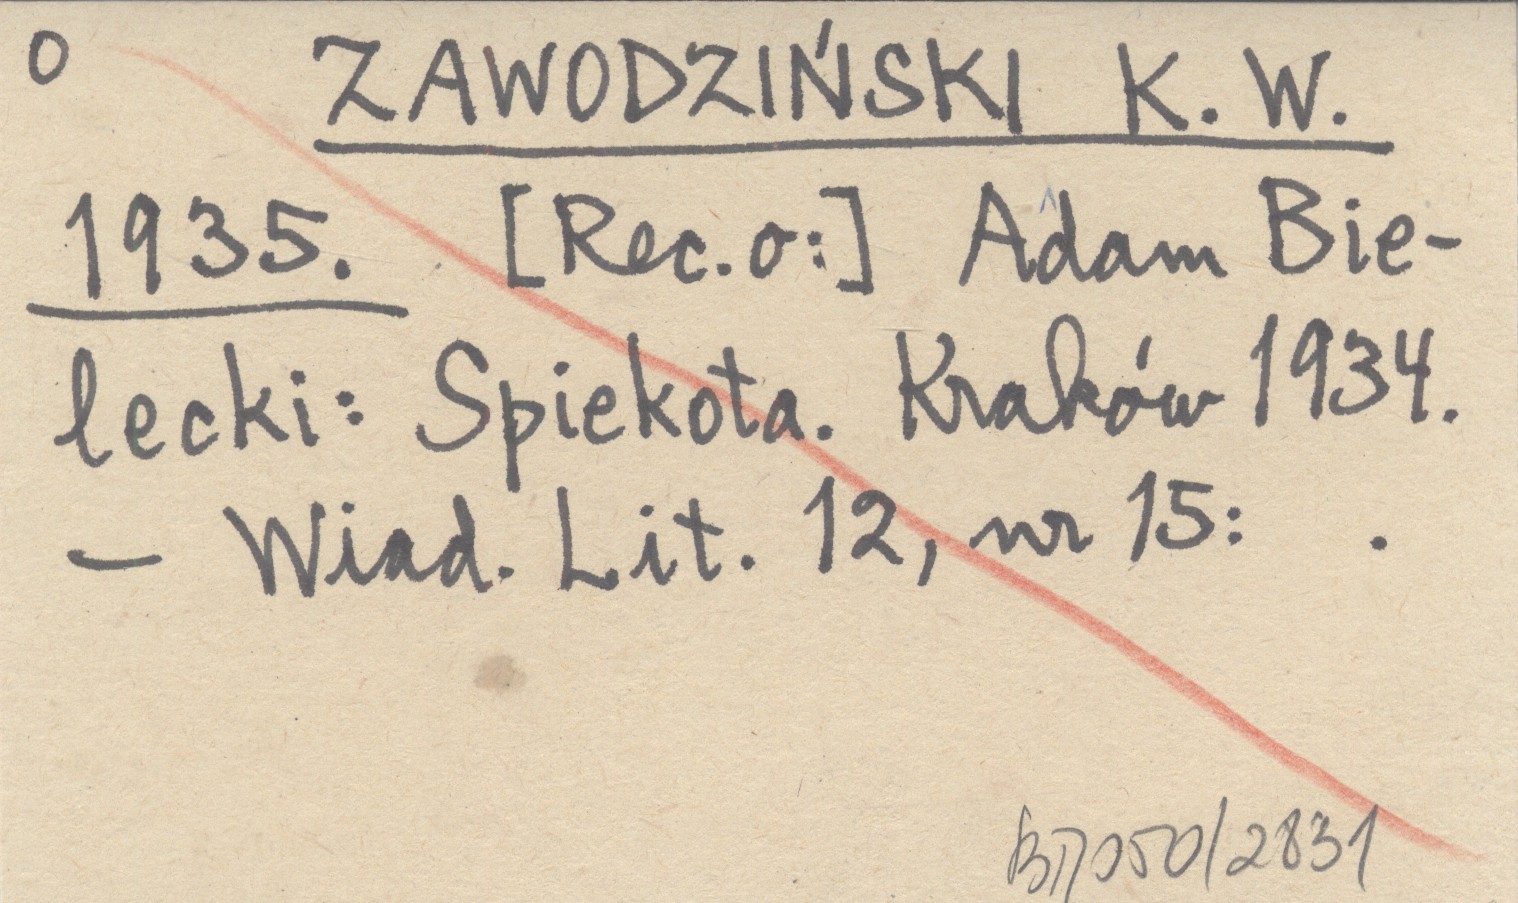 O ZAWODZIŃSKI K. W.
1935. [Rec. o:] Adam Bie-
lecki: Spiekota. Kraków 1934.
— Wiad. Lit. 12, nr 15: .
2831